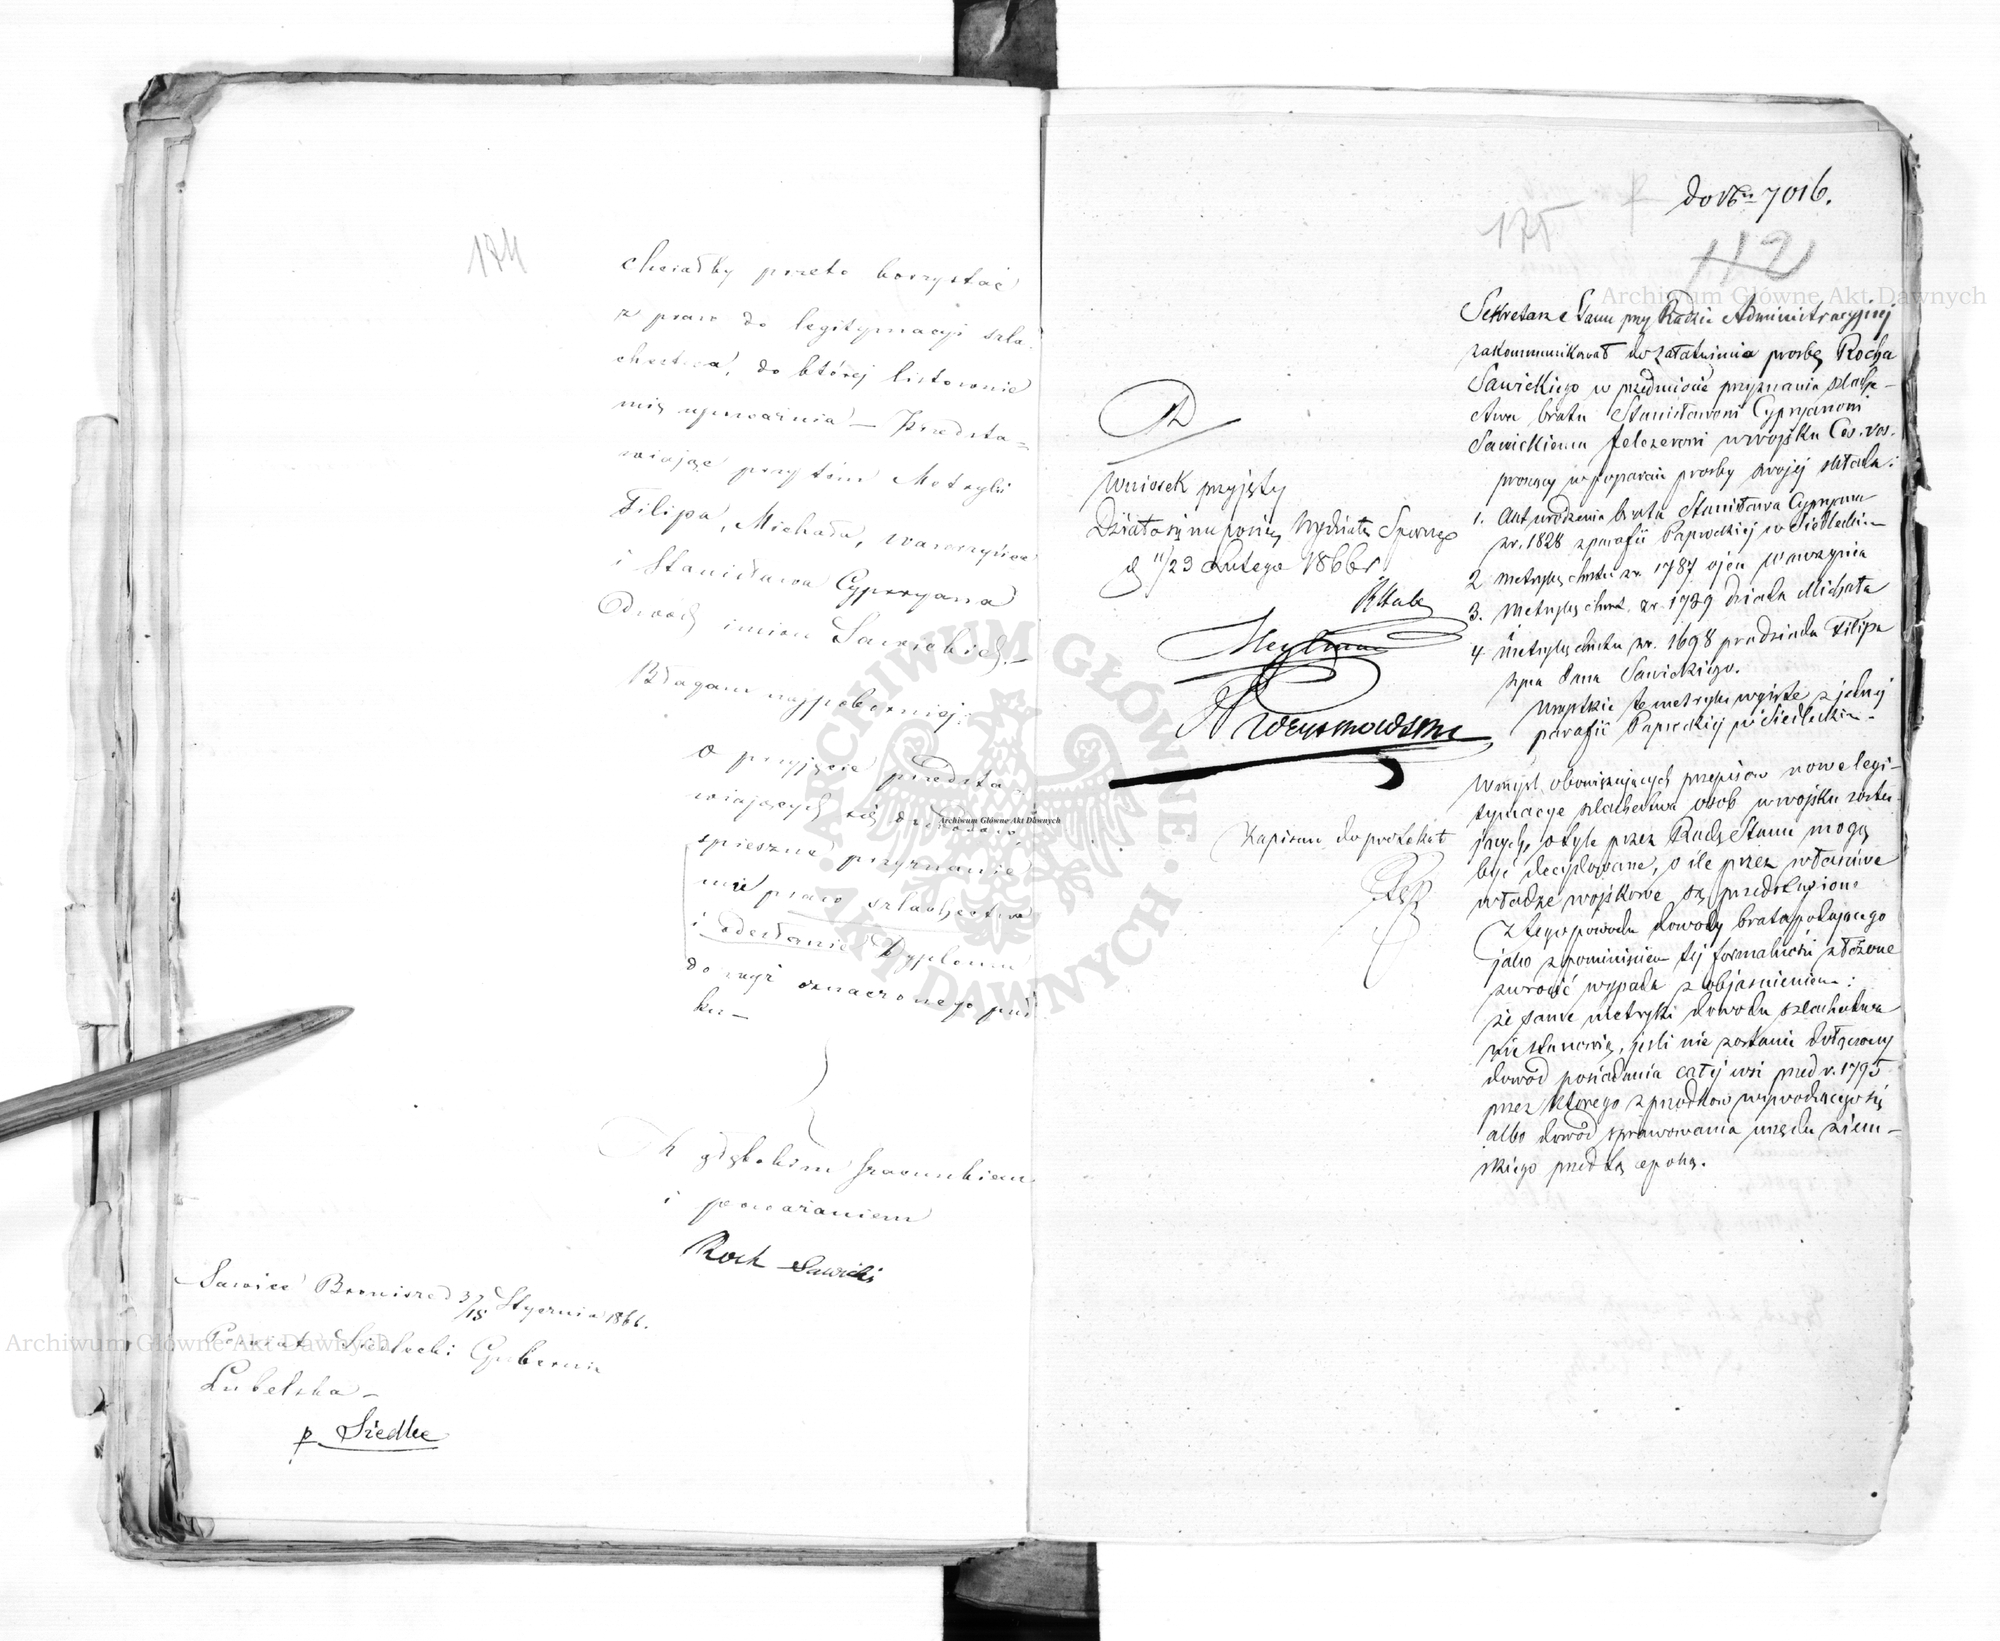 174
chciałby przeto korzystać
z praw do legitymacyi szla-
chectwa, do której listownie
mię upoważnia – Przedsta-
wiając przytém Metryki
Filipa, Michała, Wawrzyńca
i Stanisława Cypryana
Dwóch imion Sawickich. –
Błagam najpokorniej:
o przyjęcie przedsta-
wiających się dowodów
spieszne przyznanie
mu praw szlachectwa
i odesłanie Dyplomu
do wyż oznaczonego puł
ku –
Z głębokim szacunkiem
i poważaniem
Roch Sawicki
Sawice Bronisze d 3/15 Stycznia 1866.
Powiat Siedlecki Gubernia
Lubelska –
p Siedlce
do Nru 7016.
175
112
Sekretarz Stanu przy Radzie Administracyjnej
zakommunikował do załatwienia prośbę Rocha
Sawickiego w przedmiocie przyznania szlache-
ctwa bratu Stanisławowi Cypryanowi
Sawickiemu felczerowi w wojsku Ces. ros.
proszący w poparciu prośby swojej składa:
1. Akt urodzenia brata Stanisława Cypryana
z r. 1828 z parafii Paprockiej w Siedleckim
2 metrykę chrztu z r. 1787 ojca Wawrzyńca
3. Metrykę chrzt. z r. 1729 dziada Michała
4 Metrykę chrztu z r. 1698 pradziada Filipa
syna Jana Sawickiego.
Wszystkie te metryki wyjęte z jednej
parafii Paprockiej w Siedleckim.
W myśl obowiązujących przepisów nowe legi-
tymacye szlachectwa osób w wojsku zostu-
jących, o tyle przez Radę Stanu mogą
być decydowane, o ile przez właściwe
władze wojskowe są przedstawione
Z tego powodu dowody brata podającego
jako z pominięciem tej formalności złożone
zwrócić wypada z objaśnieniem:
że same metryki dowodu szlachectwa
nie stanowią, jeśli nie zostanie dołączony
dowód posiadania całej wsi przed r. 1795
przez którego z przodków wywodzącego się
albo dowód sprawowania urzędu ziem-
skiego przed tą epoką.
Wniosek przyjęty
Działo się na posiedz. Wydziału Spornego
d 11/23 Lutego 1866 r
RHube
Heylman
Zapisan do protokół
Archiwum Główne Akt Dawnych
Archiwum Główne Akt Dawnych
Archiwum Główne Akt Dawnych
ARCHIWUM GŁÓWNE · AKT DAWNYCH ·